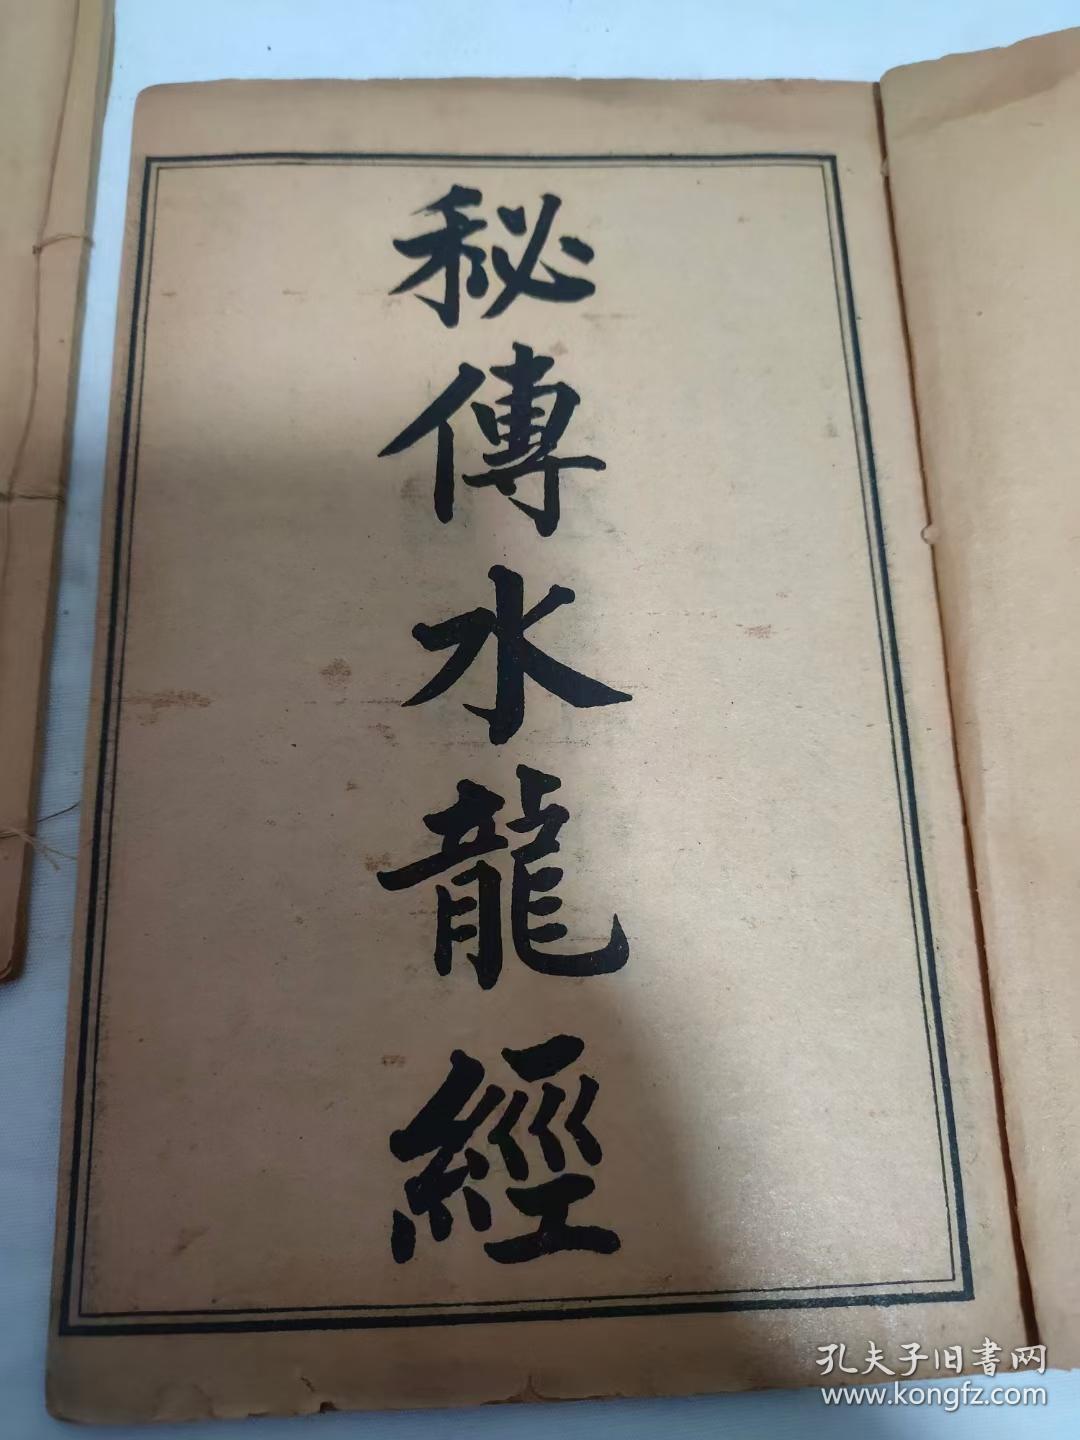 秘傳水龍經
孔夫子旧書网
www.kongfz.com